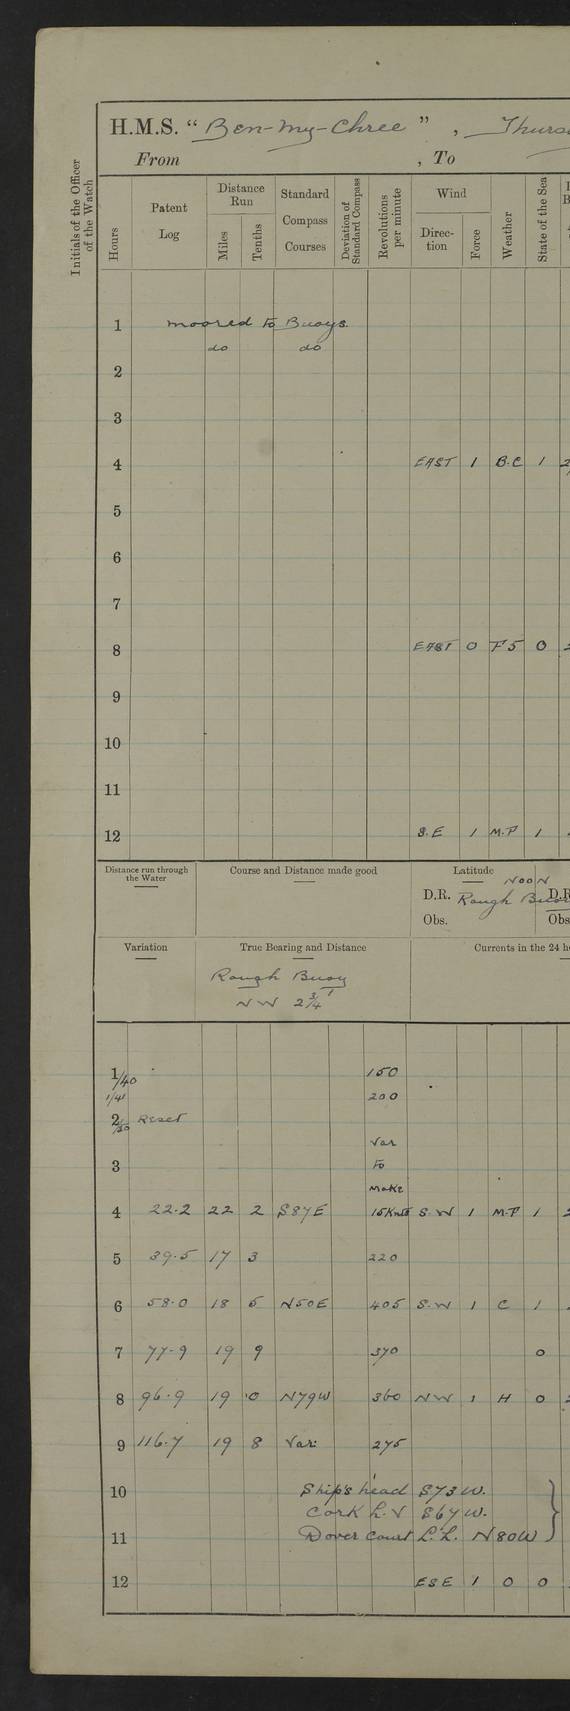 H.M.S. "Ben-my-Chree", Thurs
From , To
Initials of the Officer of the Watch
Hours
Patent Log
Distance Run
Miles
Tenths
Standard Compass Courses
Deviation of Standard Compass
Revolutions per minute
Wind
Direc-tion
Force
Weather
State of the Sea
1 moored to Buoys.
do do
2
3
4 EAST 1 B.C 1 2
5
6
7
8 EAST 0 F5 0
9
10
11
12 S.E 1 M.P 1
Distance run through the Water
Course and Distance made good
Latitude
NOON
D.R. Rough Buoy D.R
Obs. Obs
Variation
True Bearing and Distance
Currents in the 24 h
Rough Buoy
NW 2 3/4'
1/40 150
1/41 200
2 Reset
Var
3 to
make
4 22.2 22 2 S87E 15Knts S.W 1 M.P 1
5 39.5 17 3 220
6 58.0 18 5 N50E 405 S.W 1 C 1
7 77.9 19 9 370 0
8 96.9 19 0 N79W 360 NW 1 H 0
9 116.7 19 8 Var: 275
10 Ship's head S73W.
Cork L.V S67W.
11 Dovercourt L.L. N80W
12 ESE 1 0 0